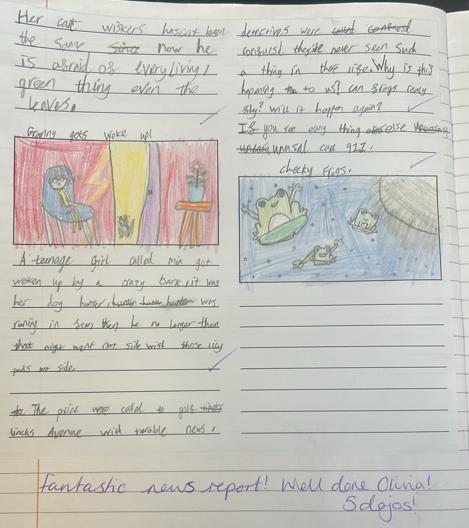 Her cat wiskers hasent been
the same since now he
is afraid of every living/
green thing even the
leaves.
Granny gets woke up!
A teenage girl called mia got
woken up by a crazy bark, it was
her dog hunter, was
runing in fear then he no longer then
that night went out side with those lily
pads out side.
to The police were called to
lincks Avenue with terable news.
detectives were called confuesd
confuesd they'de never seen such
a thing in ther life. Why is this
hapening to us? can frogs realy
fly? will it happen again?
If you see eany thing else
unusal call 911.
cheeky frogs.
Fantastic news report! Well done Olivia!
5 dojos!